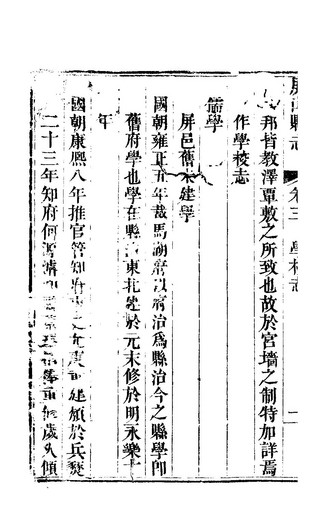 屏山縣志 卷三 學校志 一
邦皆教澤覃敷之所致也故於宮墻之制特加詳焉
作學校志
儒學
屏邑舊未建學
國朝雍正五年裁馬湖府以府治爲縣治今之縣學卽
舊府學也學在縣治東北建於元末修於明永樂十
年
國朝康熙八年推官管知府事
建頹於兵燹
二十三年知府何 歲久傾